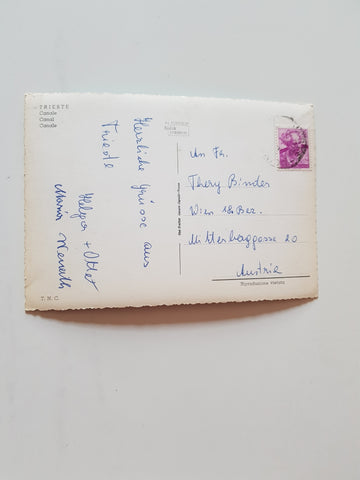 TRIESTE
Canale
Canal
Canale
Herzliche Grüsse aus
Trieste
Helga + Otto
Maria
An Fr.
Thery Binder
Wien 18. Bez.
Mitterberggasse 20
Austria
Riproduzione vietata
T. N. C.